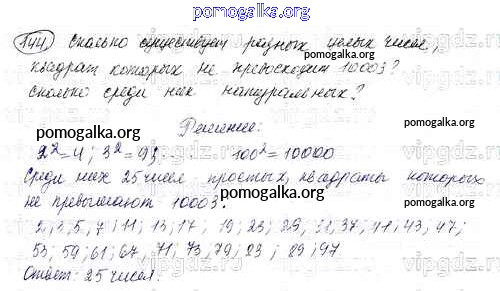 pomogalka.org
144 Сколько существует разных целых чисел,
квадрат которых не превосходит 10003?
Сколько среди них натуральных?
pomogalka.org
Решение:
pomogalka.org
2²=4; 3²=9; ... 100²=10000
Среди них 25 чисел простых, квадраты которых
не превышают 10003.
pomogalka.org
2; 3; 5; 7; 11; 13; 17; 19; 23; 29; 31; 37; 41; 43; 47;
53; 59; 61; 67; 71; 73; 79; 83; 89; 97
Ответ: 25 чисел.
pomogalka.org